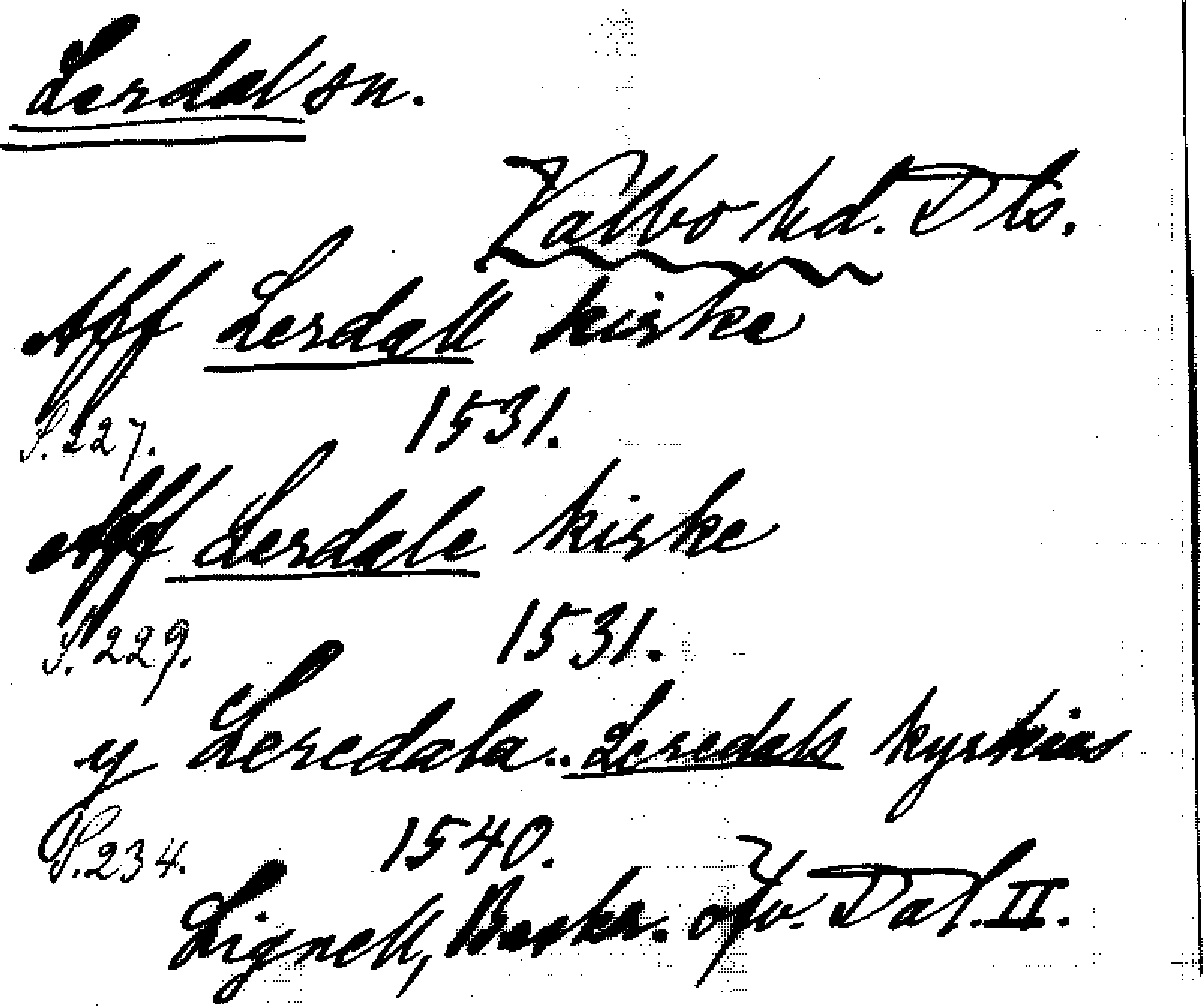 Lerdal sn.
Valbo hd. Dls.
Aff Lerdall kirke
S. 227. 1531.
Aff Lerdale kirke
S. 229. 1531.
y Leredala.. Leredals kyrkias
S. 234. 1540.
Lignell, Beskr. öfv. Dal. II.